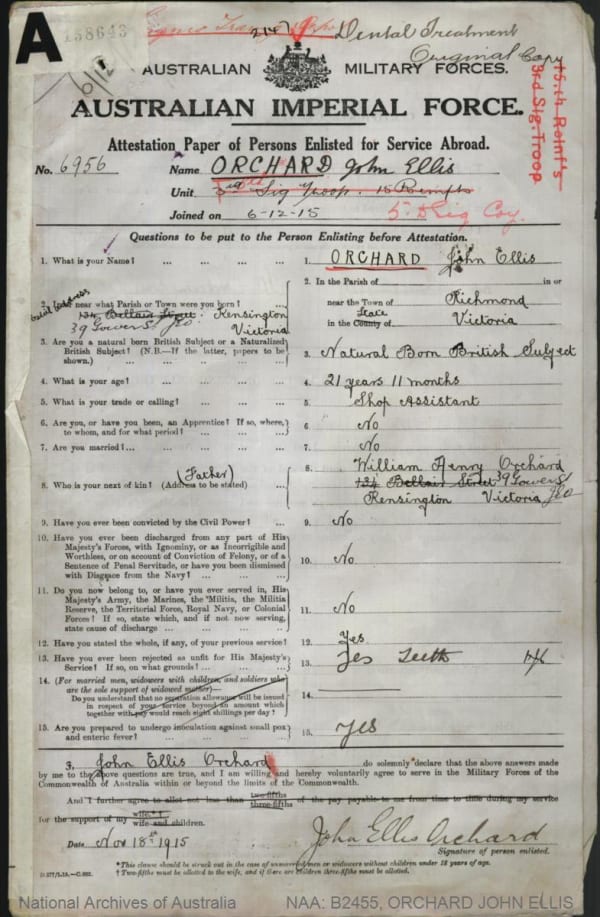 A
158643
2147
Dental Treatment
Original Copy
AUSTRALIAN MILITARY FORCES.
AUSTRALIAN IMPERIAL FORCE.
15th Reinf's
3rd Sig. Troop
Attestation Paper of Persons Enlisted for Service Abroad.
No. 6956 Name ORCHARD John Ellis
Unit 3rd Sig Troop. 15 Reinfts
Joined on 6-12-15 5. D Sig Coy.
Questions to be put to the Person Enlisting before Attestation.
1. What is your Name? ... ... ... ... 1. ORCHARD John Ellis
2. In or near what Parish or Town were you born? 2. In the Parish of in or
near the Town of Richmond
State
in the County of Victoria
134 Bellair Street Kensington
39 Gower St JEO Victoria
3. Are you a natural born British Subject or a Naturalized British Subject? (N.B.—If the latter, papers to be shown.) 3. Natural Born British Subject
4. What is your age? 4. 21 years 11 months
5. What is your trade or calling? 5. Shop Assistant
6. Are you, or have you been, an Apprentice? If so, where, to whom, and for what period? 6. No
7. Are you married? 7. No
8. Who is your next of kin? (Address to be stated) (Father) 8. William Henry Orchard
134 Bellair Street 39 Gower St
Kensington Victoria JEO
9. Have you ever been convicted by the Civil Power? 9. No
10. Have you ever been discharged from any part of His
Majesty's Forces, with Ignominy, or as Incorrigible and
Worthless, or on account of Conviction of Felony, or of a
Sentence of Penal Servitude, or have you been dismissed
with Disgrace from the Navy? 10. No
11. Do you now belong to, or have you ever served in, His
Majesty's Army, the Marines, the Militia, the Militia
Reserve, the Territorial Force, Royal Navy, or Colonial
Forces? If so, state which, and if not now serving,
state cause of discharge 11. No
12. Have you stated the whole, if any, of your previous service? 12. Yes
13. Have you ever been rejected as unfit for His Majesty's
Service? If so, on what grounds? 13. Yes Teeth
14. (For married men, widowers with children, and soldiers who
are the sole support of widowed mother)—
Do you understand that no separation allowance will be issued
in respect of your service beyond an amount which
together with pay would reach eight shillings per day? 14.
15. Are you prepared to undergo inoculation against small pox
and enteric fever? 15. Yes
I, John Ellis Orchard do solemnly declare that the above answers made
by me to the above questions are true, and I am willing and hereby voluntarily agree to serve in the Military Forces of the
Commonwealth of Australia within or beyond the limits of the Commonwealth.
And I further agree to allot not less than two-fifths three-fifths of the pay payable to me from time to time during my service
for the support of my wife.*† wife and children.
Date Nov 18th 1915 John Ellis Orchard
Signature of person enlisted.
*This clause should be struck out in the case of unmarried men or widowers without children under 18 years of age.
† Two-fifths must be allotted to the wife, and if there are children three-fifths must be allotted.
D.277/1.15.—C.882.
National Archives of Australia NAA: B2455, ORCHARD JOHN ELLIS